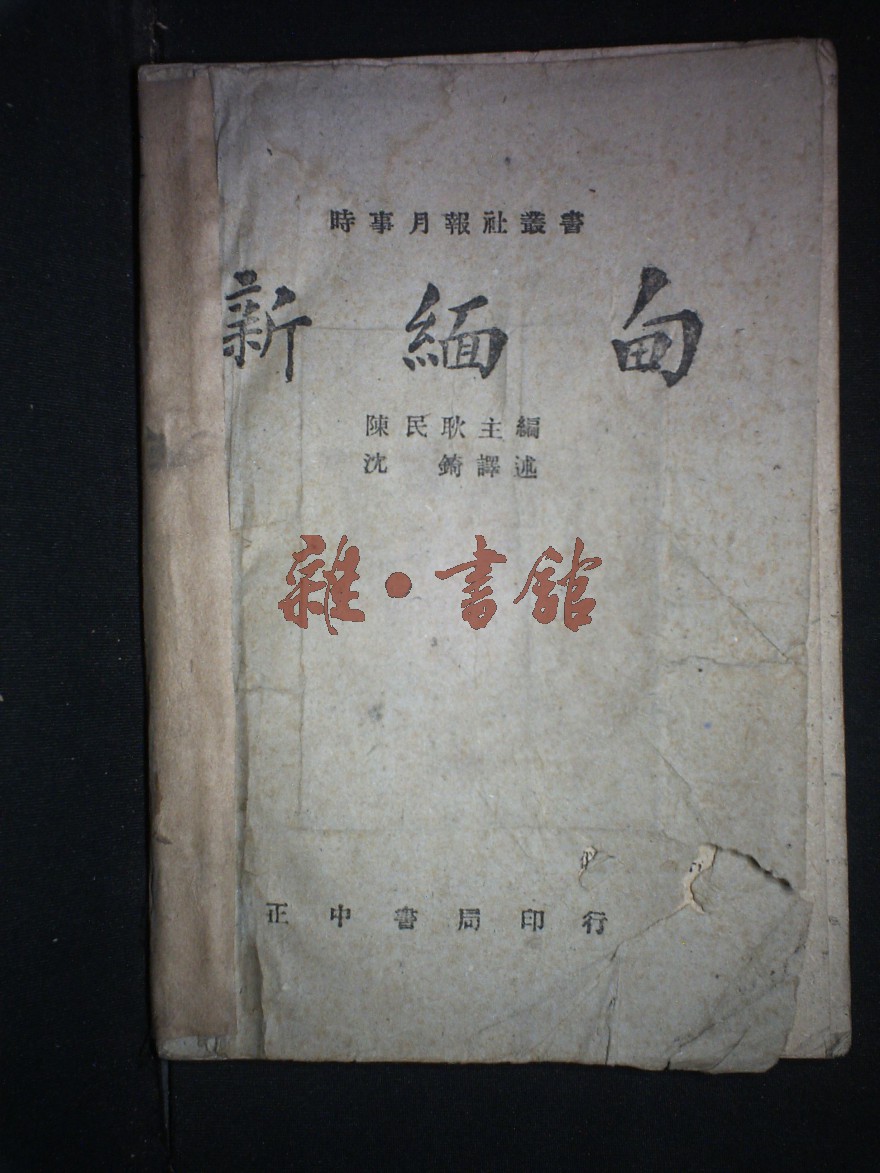 時事月報社叢書
新緬甸
陳民耿主編
沈錡譯述
雜·書館
正中書局印行